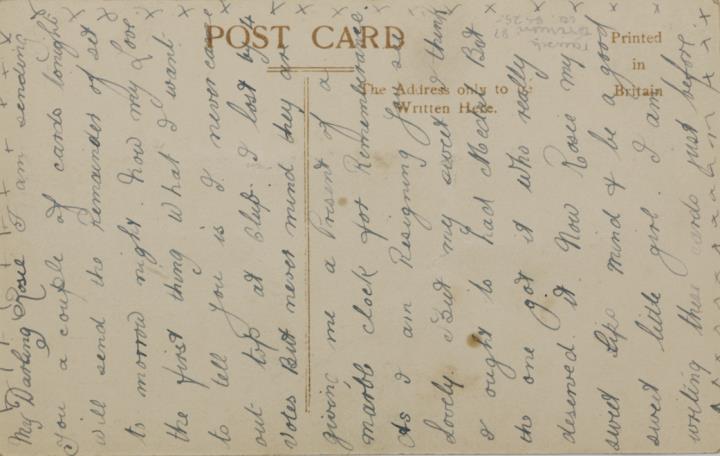 POST CARD
Printed
in
Britain
The Address only to be
Written Here.
My Darling Rosie I am sending
You a couple of cards tonight
will send the remainder of set
to morrow night. Now my Love
the first thing what I want
to tell you is I never came
out top at Club. I lost by 4
votes But never mind they are
giving me a Present of a
marble clock for Remembrance.
As I am Resigning
Lovely. But my sweet I think
I ought to had Medal But
the one got it who really
deserved it. Now Rosie my
sweet Life mind & be a good
sweet little girl. I am
writing these cards just before